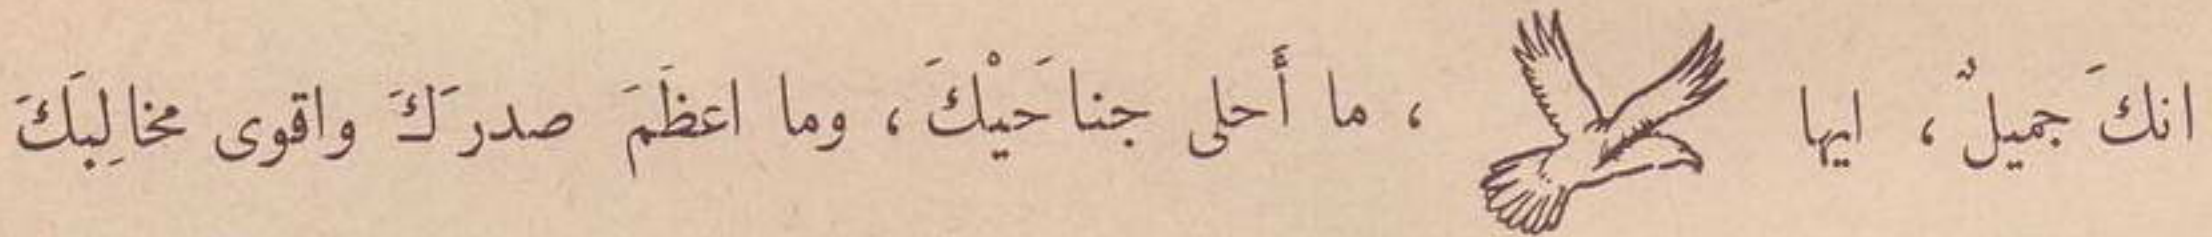 انكَ جميلٌ، ايها ، ما أَحلى جناحَيْكَ، وما اعظَمَ صدرَكَ واقوى مخالِبَكَ